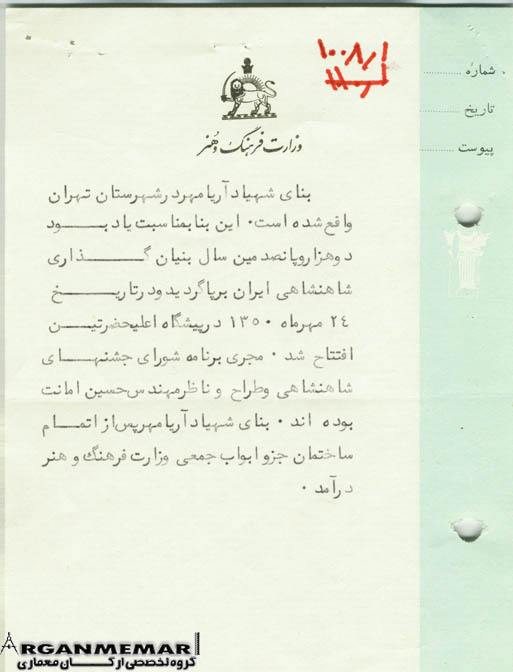 ۱۰۰۸/۱
شماره
تاریخ
پیوست
وزارت فرهنگ و هنر
بنای شهیاد آریامهر در شهرستان تهران
واقع شده است. این بنا بمناسبت یادبود
دوهزار و پانصدمین سال بنیان گذاری
شاهنشاهی ایران برپا گردید و در تاریخ
۲٤ مهرماه ۱۳۵۰ در پیشگاه اعلیحضرتین
افتتاح شد. مجری برنامه شورای جشنهای
شاهنشاهی و طراح و ناظر مهندس حسین امانت
بوده اند. بنای شهیاد آریامهر پس از اتمام
ساختمان جزو ابواب جمعی وزارت فرهنگ و هنر
درآمد.
ARGANMEMARI
گروه تخصصی ارکان معماری